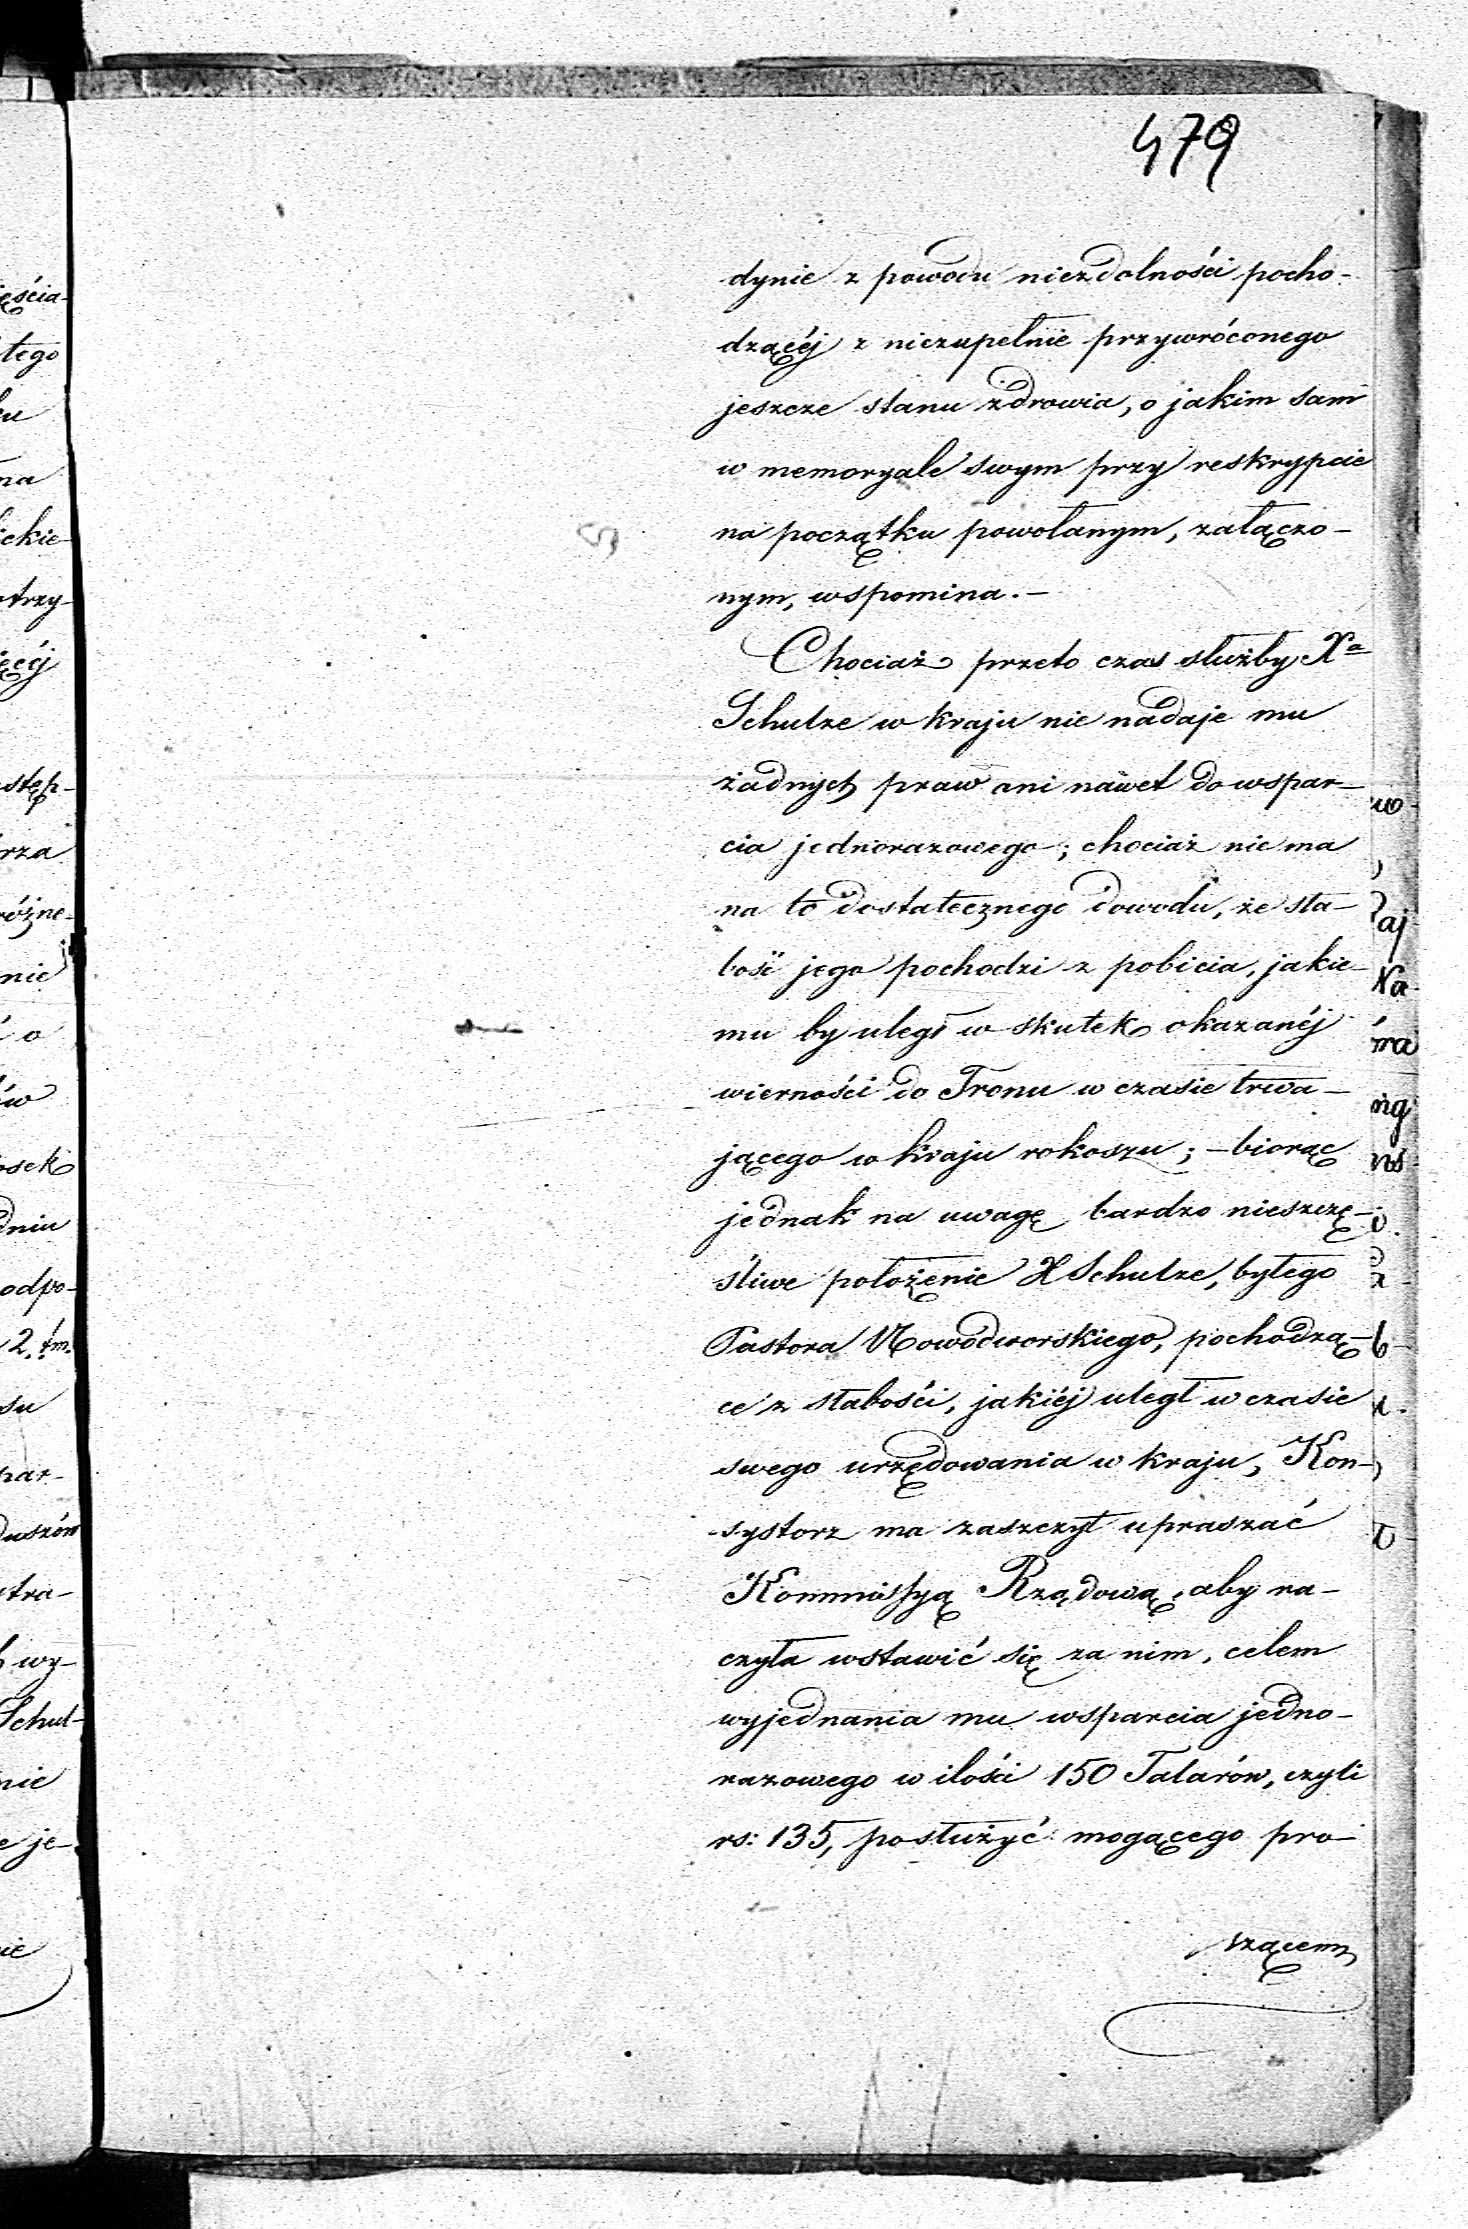 479
dynie z powodu niezdolności pocho-
dzącéj z niezupełnie przywróconego
jeszcze stanu zdrowia, o jakim sam
w memoryale swym przy reskrypcie
na początku powołanym, załączo-
nym, wspomina.-
Chociaż przeto czas służby Xa
Schulze w kraju nie nadaje mu
żadnych praw ani nawet do wspar-
cia jednorazowego; chociaż nie ma
na to dostatecznego dowodu, że sła-
bość jego pochodzi z pobicia, jakie-
mu by uległ w skutek okazanéj
wierności do Tronu w czasie trwa-
jącego w kraju rokoszu; - biorąc
jednak na uwagę bardzo nieszczę-
śliwe położenie X Schulze, byłego
Pastora Nowodworskiego, pochodzą-
ce z słabości, jakiéj uległ w czasie
swego urzędowania w kraju, Kon-
systorz ma zaszczyt upraszać
Kommissyą Rządową, aby ra-
czyła wstawić się za nim, celem
wyjednania mu wsparcia jedno-
razowego w ilości 150 Talarów, czyli
rs: 135, posłużyć mogącego pro-
szącemu